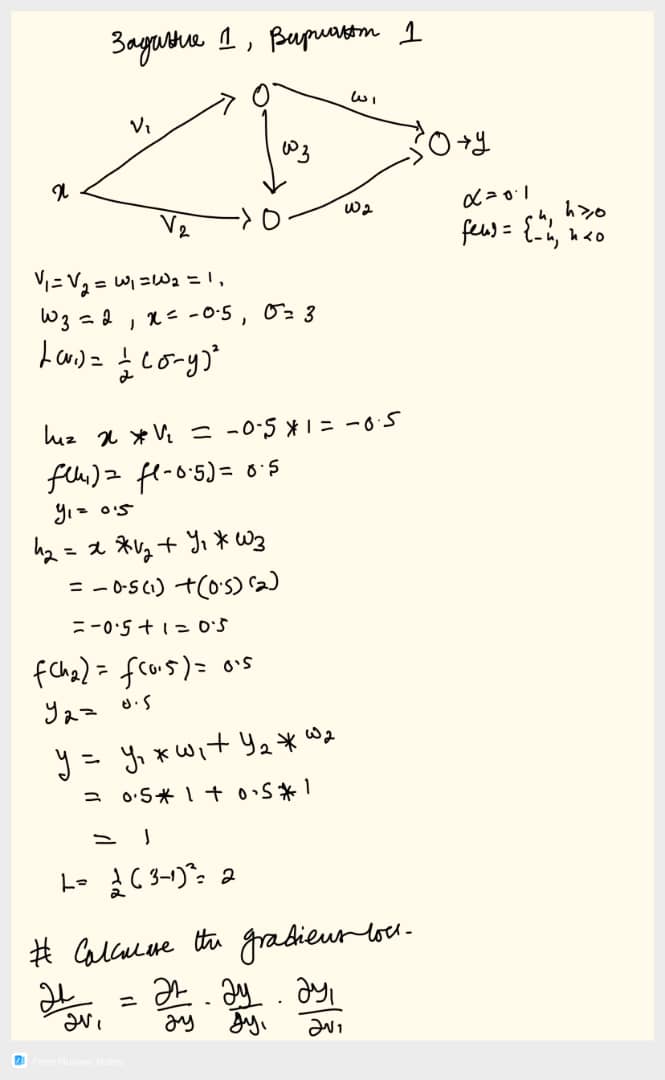 Задание 1, Вариант 1
V₁
w₁
w₃
O → y
x
V₂
w₂
α = 0.1
f(h) = { h, h ≥ 0
-h, h < 0
V₁ = V₂ = w₁ = w₂ = 1,
w₃ = 2, x = -0.5, σ = 3
L(w) = 1/2 (σ - y)²
h₁ = x * V₁ = -0.5 * 1 = -0.5
f(h₁) = f(-0.5) = 0.5
y₁ = 0.5
h₂ = x * V₂ + y₁ * w₃
= -0.5(1) + (0.5)(2)
= -0.5 + 1 = 0.5
f(h₂) = f(0.5) = 0.5
y₂ = 0.5
y = y₁ * w₁ + y₂ * w₂
= 0.5 * 1 + 0.5 * 1
= 1
L = 1/2 (3-1)² = 2
# Calculate the gradient loss.
∂L/∂v₁ = ∂L/∂y · ∂y/∂y₁ · ∂y₁/∂v₁